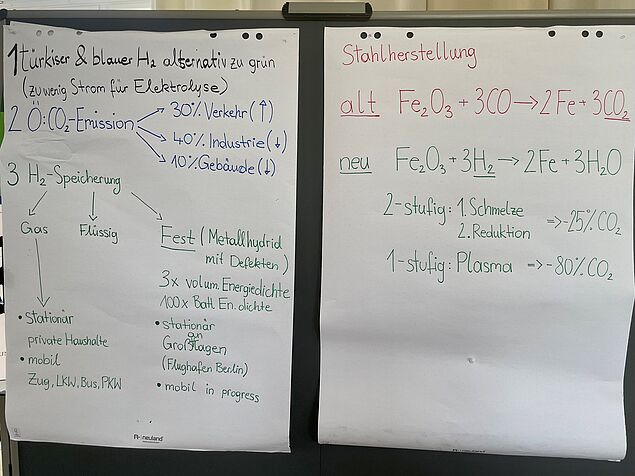 1 türkiser & blauer H₂ alternativ zu grün
(zu wenig Strom für Elektrolyse)
2 Ö: CO₂-Emission → 30% Verkehr (↑)
→ 40% Industrie (↓)
→ 10% Gebäude (↓)
3 H₂-Speicherung
Gas
Flüssig
Fest (Metallhydrid
mit Defekten)
3x volum. Energiedichte
100x Batt. En.dichte
• stationär
private Haushalte
• mobil
Zug, LKW, Bus, PKW
• stationär
Großanlagen
(Flughafen Berlin)
• mobil in progress
neuland
Stahlherstellung
alt Fe₂O₃ + 3CO → 2Fe + 3CO₂
neu Fe₂O₃ + 3H₂ → 2Fe + 3H₂O
2-stufig: 1. Schmelze
2. Reduktion => -25% CO₂
1-stufig: Plasma => -80% CO₂